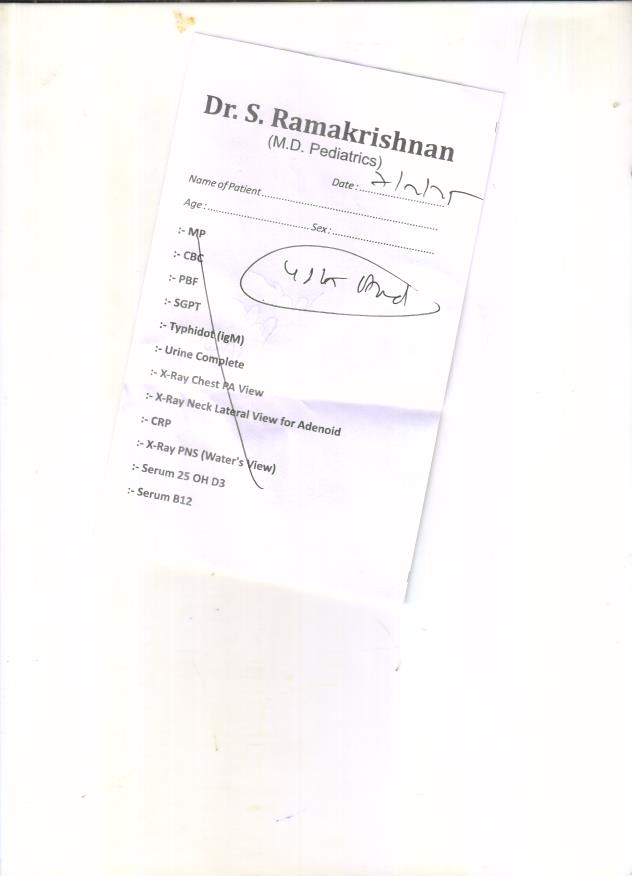 Dr. S. Ramakrishnan
(M.D. Pediatrics)
Date : 7/2/25
Name of Patient
Age : Sex :
:- MP
:- CBC
:- PBF
:- SGPT
:- Typhidot (igM)
:- Urine Complete
:- X-Ray Chest PA View
:- X-Ray Neck Lateral View for Adenoid
:- CRP
:- X-Ray PNS (Water's View)
:- Serum 25 OH D3
:- Serum B12